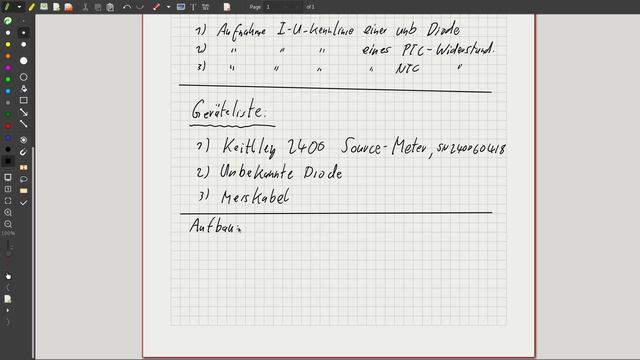 Page 1 of 1
1) Aufnahme I-U-Kennlinie einer unb Diode
2) " " " eines PTC-Widerstand.
3) " " " " NTC "
Geräteliste:
1) Keithley 2400 Source-Meter, SN240060418
2) Unbekannte Diode
3) Messkabel
Aufbau:
100%